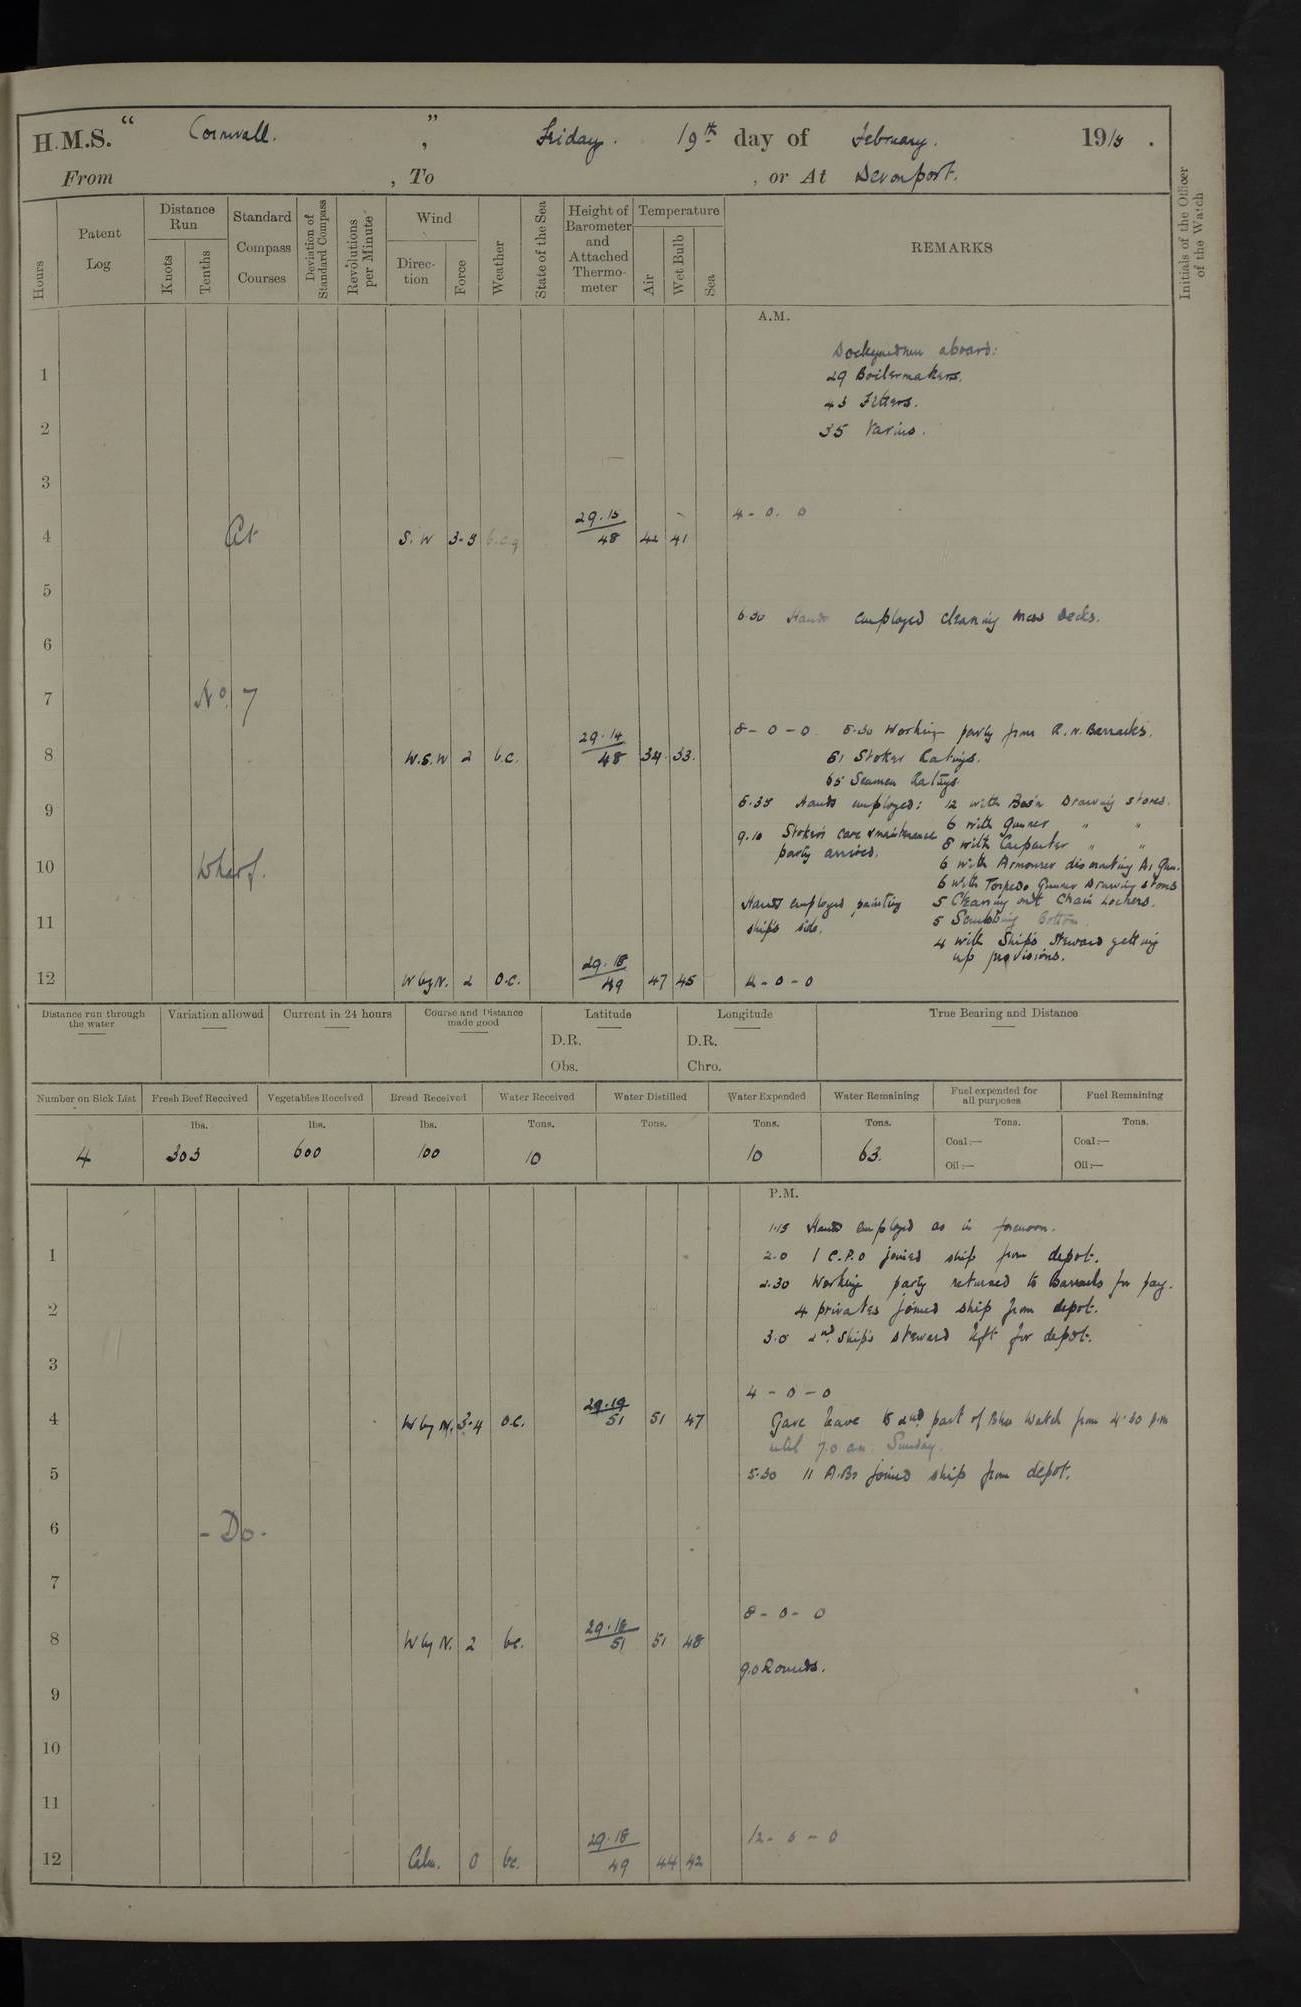 H.M.S. " Cornwall. " , Friday. 19th day of February. 1915.
From , To , or At Devonport.
Hours
Patent Log
Distance Run
Knots
Tenths
Standard Compass Courses
Deviation of Standard Compass
Revolutions per Minute
Wind
Direction
Force
Weather
State of the Sea
Height of Barometer and Attached Thermometer
Temperature
Air
Wet Bulb
Sea
REMARKS
Initials of the Officer of the Watch
A.M.
Dockyardmen aboard:
1 29 Boilermakers.
43 Fitters.
2 35 Various.
3
4 - 0. 0
4 At S.W 3-5 b.c.q 29.15/48 42 41
5
6.30 Hands employed cleaning mess decks.
6
7 No. 7
8 - 0 - 0 8.30 Working party from R.N. Barracks.
8 W.S.W 2 b.c. 29.14/48 34 33. 51 Stoker Ratings.
65 Seamen Ratings.
8.35 Hands employed: 12 with Bos'n Drawing stores.
9 6 with Gunner " "
9.10 Stokers care & maintenance party arrived.
8 with Carpenter " "
10 Wharf. 6 with Armourer dismounting A1 Gun.
6 with Torpedo Gunner Drawing stores
Hands employed painting ship's side.
5 Cleaning out Chain Lockers.
11 5 Scrubbing Bottom.
4 with Ship's Steward getting up provisions.
12 W by N. 2 O.C. 29.18/49 47 45 12 - 0 - 0
Distance run through the water
Variation allowed
Current in 24 hours
Course and Distance made good
Latitude
D.R.
Obs.
Longitude
D.R.
Chro.
True Bearing and Distance
Number on Sick List
Fresh Beef Received
Vegetables Received
Bread Received
Water Received
Water Distilled
Water Expended
Water Remaining
Fuel expended for all purposes
Fuel Remaining
lbs. lbs. lbs. Tons. Tons. Tons. Tons. Tons. Tons.
4 303 600 100 10 10 63.
Coal:— Coal:—
Oil:— Oil:—
P.M.
1.15 Hands employed as in forenoon.
1 2.0 1 C.P.O joined ship from depot.
2.30 Working party returned to Barracks for pay.
2 4 privates joined ship from depot.
3.0 2nd Ship's steward left for depot.
3
4 - 0 - 0
4 W by N. 3-4 O.C. 29.19/51 51 47 Gave leave to 2nd part of Stbd Watch from 4.30 pm
until 7.0 am. Sunday.
5 5.30 11 A.Bs joined ship from depot.
6 - Do -
7
8 - 0 - 0
8 W by N. 2 bc. 29.18/51 51 48
9.0 Rounds.
9
10
11
12 - 0 - 0
12 Calm. 0 bc. 29.18/49 44 42